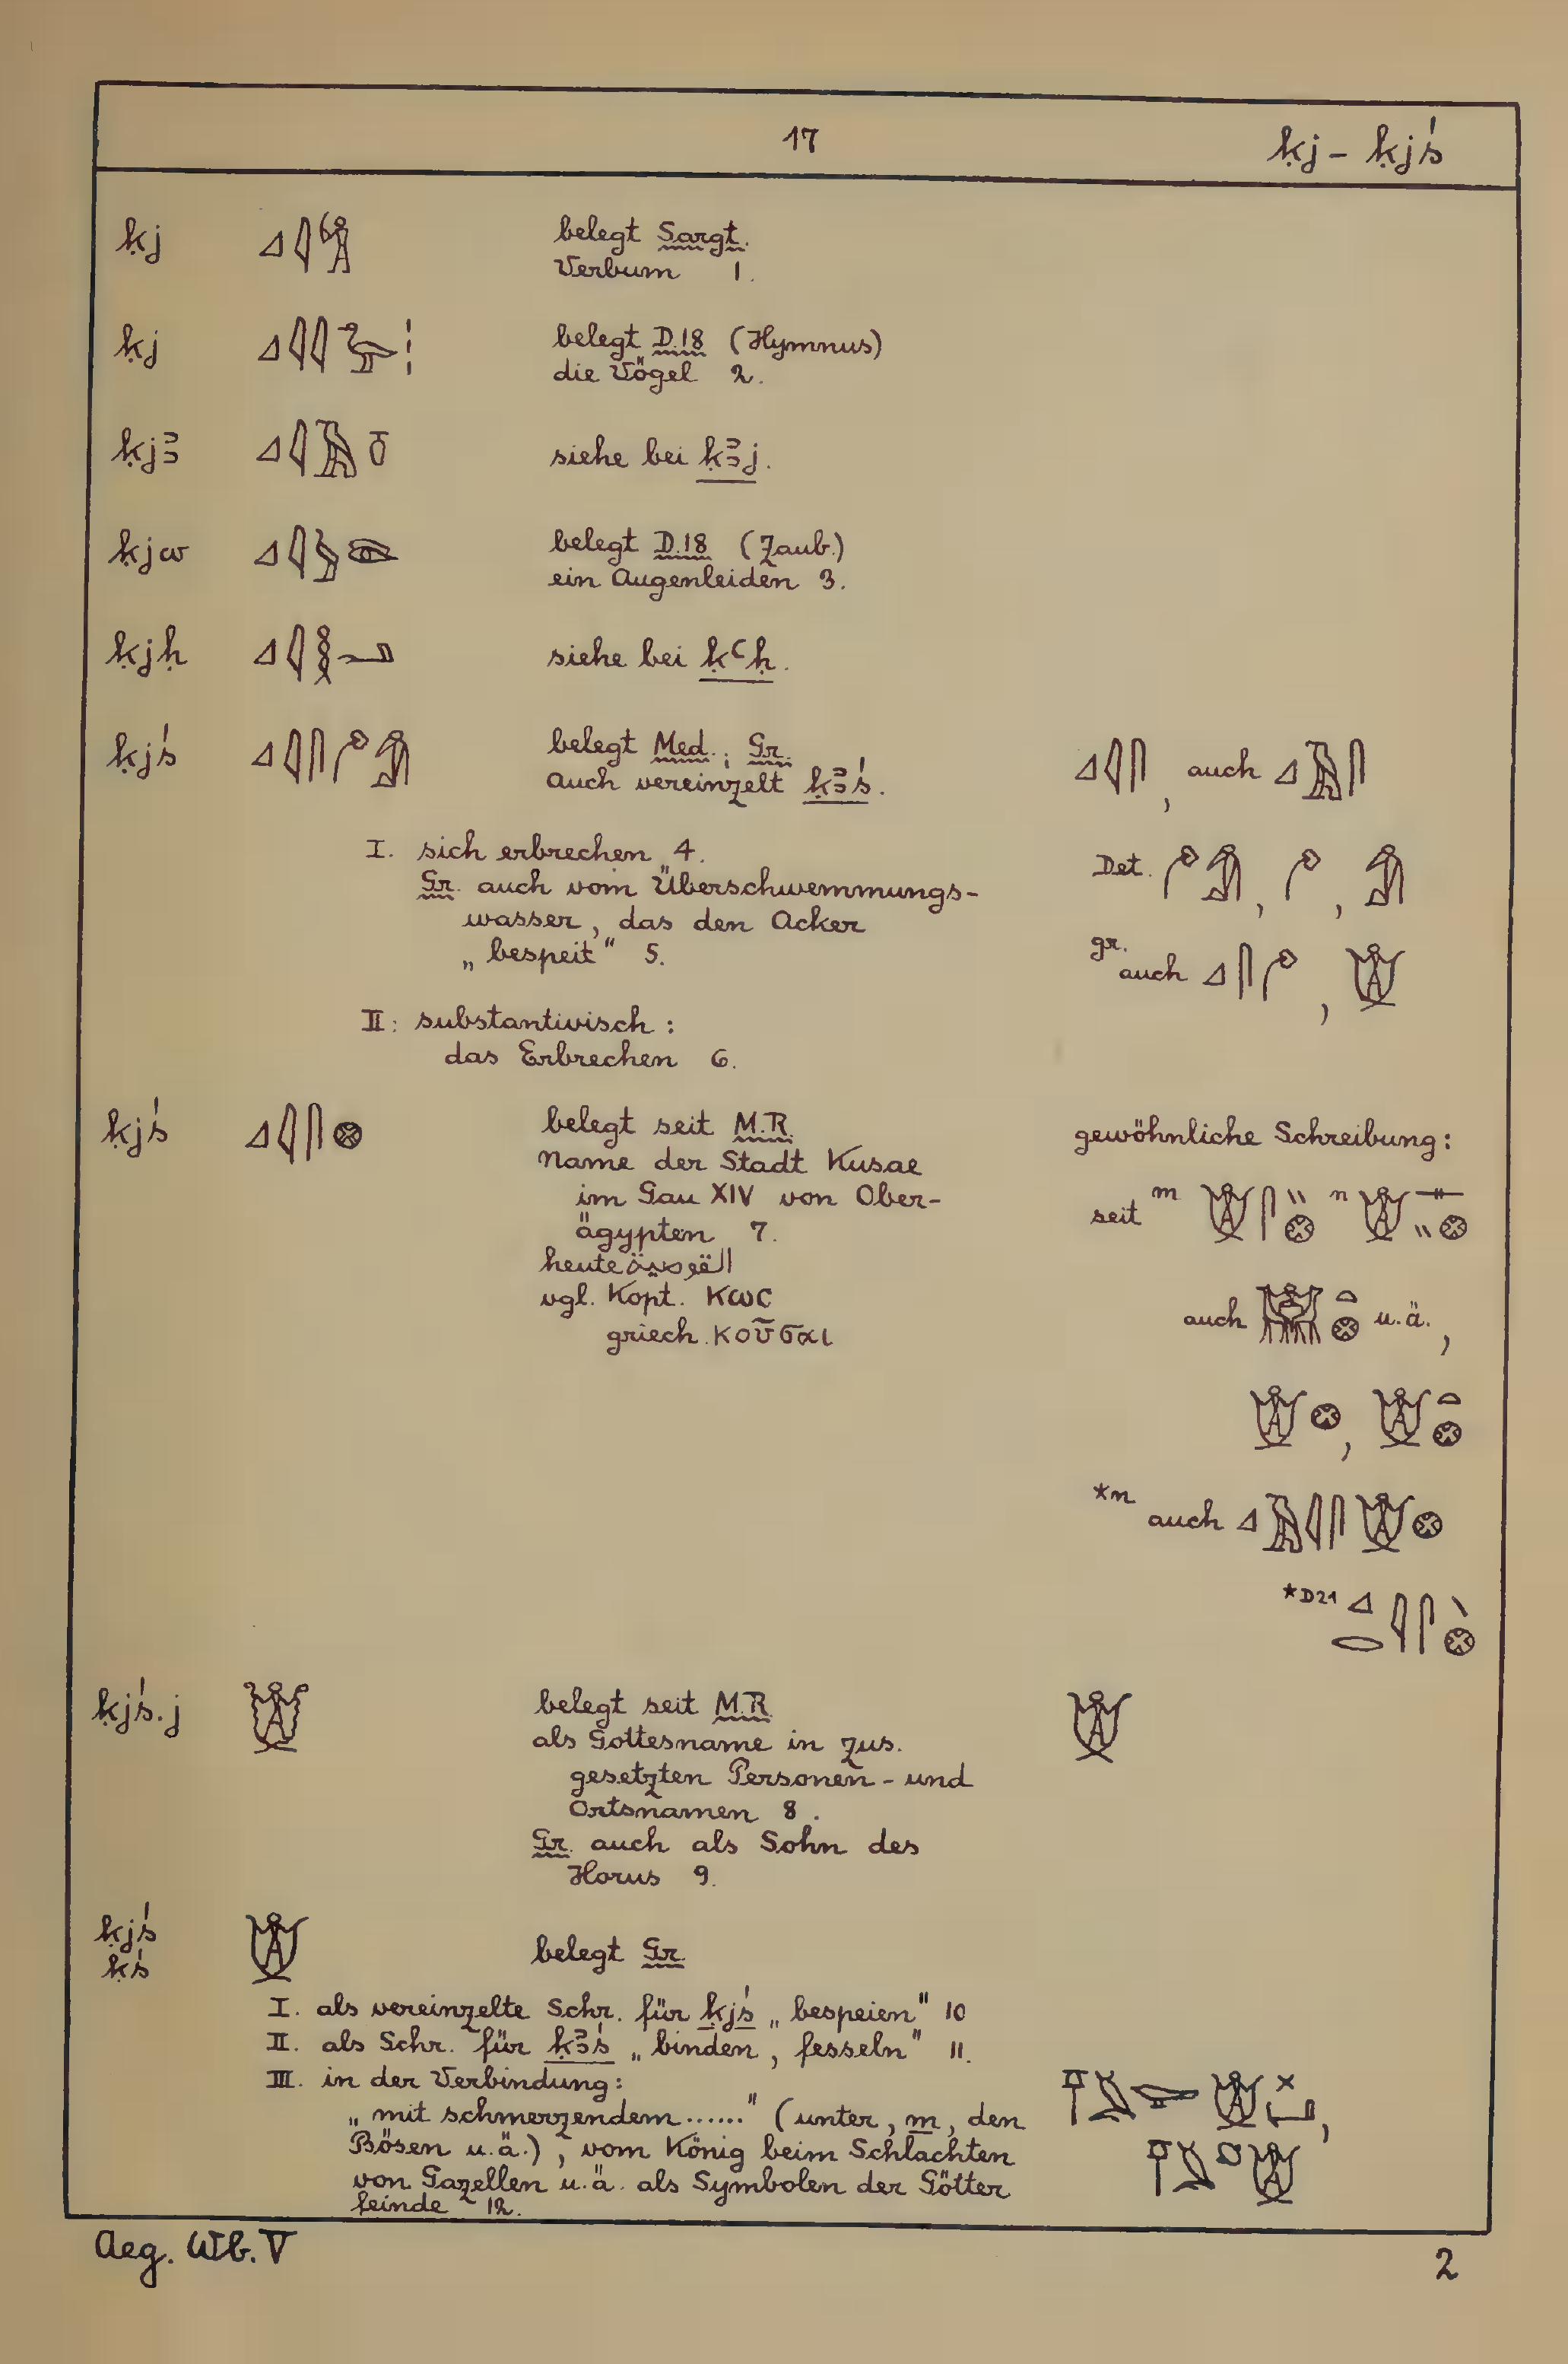 17 ḳj – ḳjś
ḳj 𓈎𓇋𓀜 belegt Sargt.
Verbum 1.
ḳj 𓈎𓇋𓇋𓅬𓏥 belegt D.18 (Hymnus)
die Vögel 2.
ḳjꜣ 𓈎𓇋𓄿𓏌 siehe bei ḳꜣj.
ḳjw 𓈎𓇋𓅱𓁹 belegt D.18 (Zaub.)
ein Augenleiden 3.
ḳjḥ 𓈎𓇋𓎛 siehe bei ḳꜥḥ.
ḳjś 𓈎𓇋𓋴 belegt Med., Gr.
auch vereinzelt ḳꜣś.
𓈎𓇋𓋴, auch 𓈎𓄿𓋴
I. sich erbrechen 4.
Gr. auch vom Überschwemmungs-
wasser, das den Acker
„bespeit“ 5.
Det.
gr. auch 𓈎𓋴
II. substantivisch:
das Erbrechen 6.
ḳjś 𓈎𓇋𓋴𓊖 belegt seit M.R.
Name der Stadt Kusae
im Gau XIV von Ober-
ägypten 7.
heute القوصية
vgl. Kopt. ⲕⲱⲥ
griech. κοῦσαι
gewöhnliche Schreibung:
seit m 𓀲𓋴𓏭𓊖 n 𓀲𓊃𓏭𓊖
auch 𓀱𓏏𓊖 u.ä.,
𓀲𓊖, 𓀲𓏏𓊖
*n auch 𓈎𓄿𓇋𓋴𓀲𓊖
*D21 𓈎𓂋𓇋𓋴𓏲𓊖
ḳjś.j belegt seit M.R.
als Gottesname in zus.
gesetzten Personen- und
Ortsnamen 8.
Gr. auch als Sohn des
Horus 9.
𓀲
ḳjś
ḳś 𓀲 belegt Gr.
I. als vereinzelte Schr. für ḳjś „bespeien“ 10
II. als Schr. für ḳꜣś „binden, fesseln“ 11.
III. in der Verbindung:
„mit schmerzendem ......“ (unter, m, den
Bösen u.ä.), vom König beim Schlachten
von Gazellen u.ä. als Symbolen der Götter
feinde 12.
Aeg. Wb. V 2